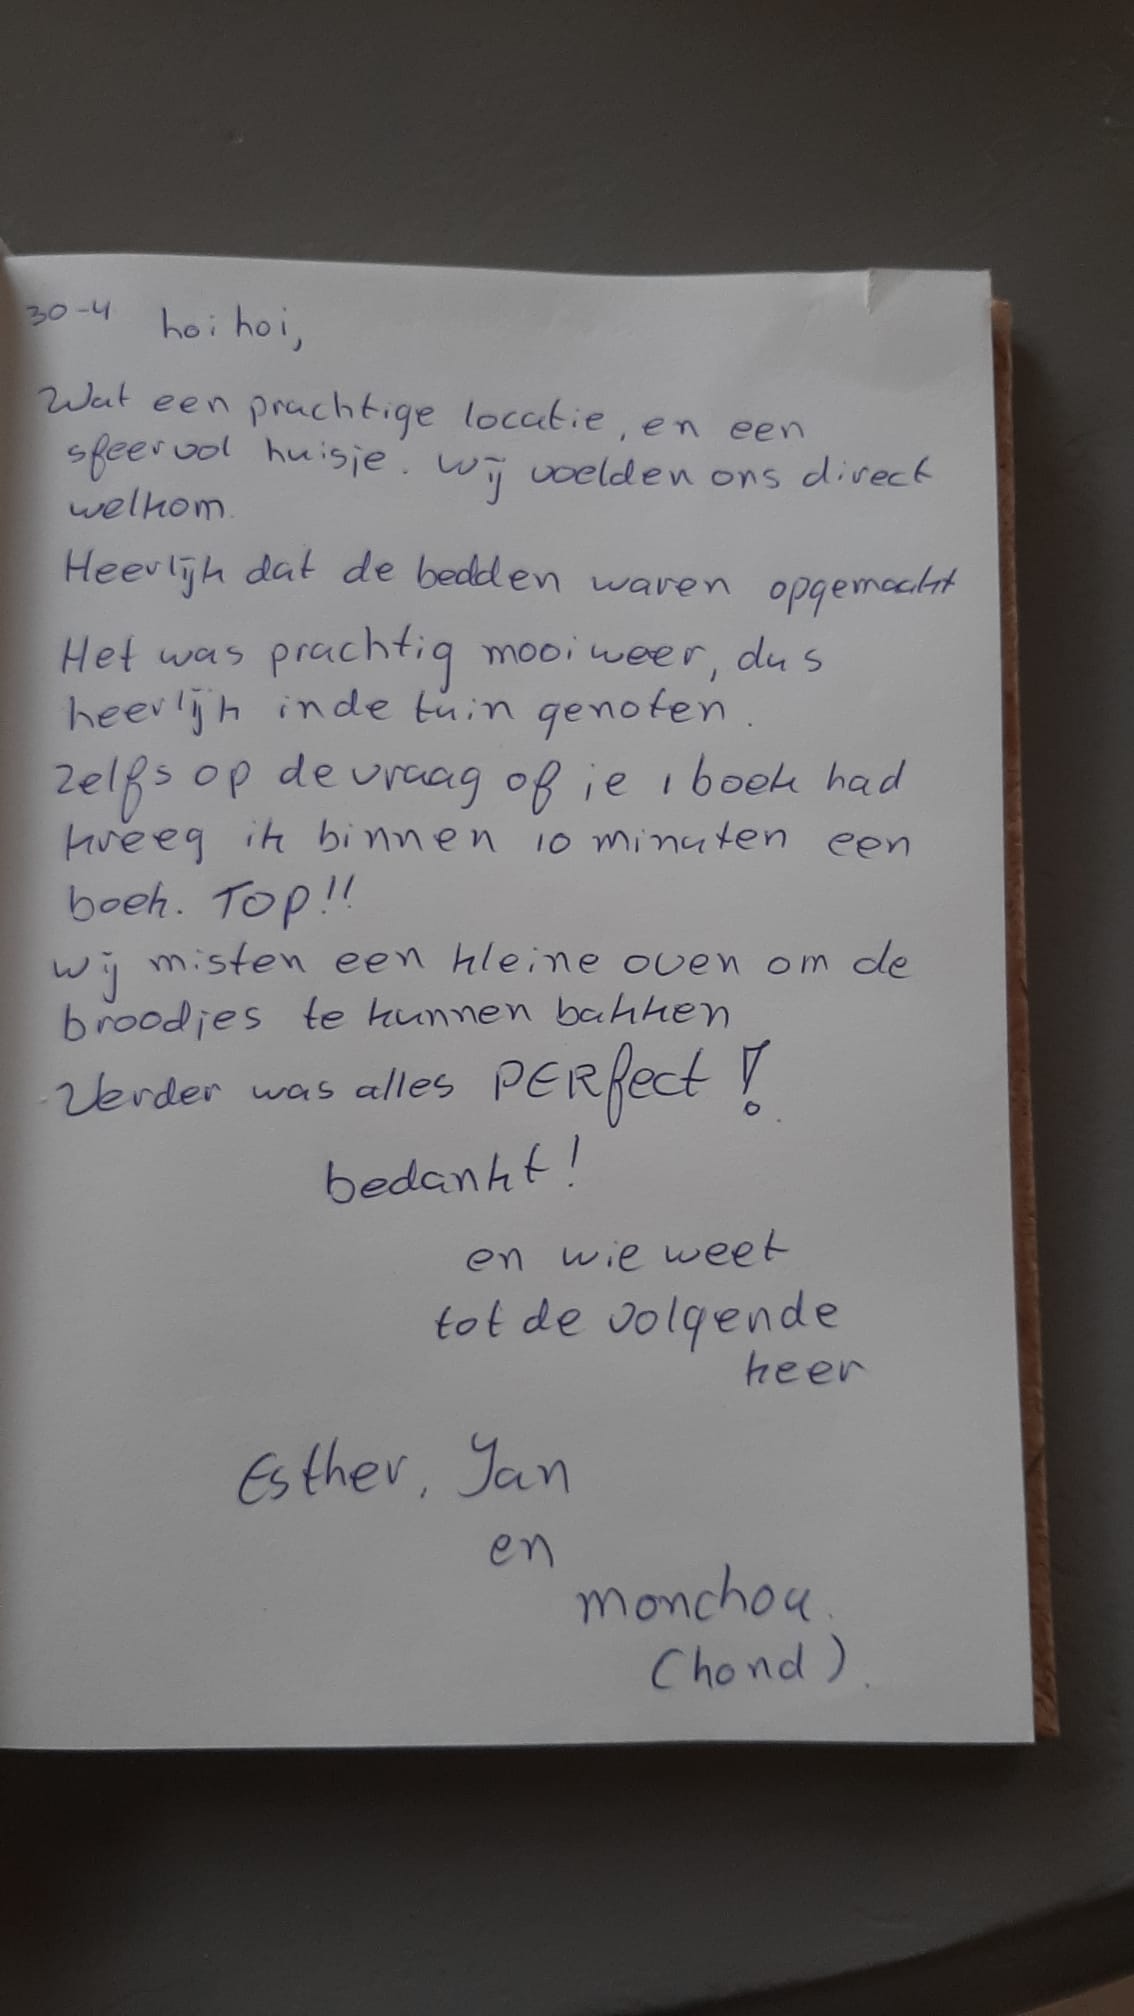 30-4 hoi hoi,
Wat een prachtige locatie, en een
sfeervol huisje. Wij voelden ons direct
welkom.
Heerlijk dat de bedden waren opgemaakt
Het was prachtig mooi weer, dus
heerlijk in de tuin genoten.
Zelfs op de vraag of je 1 boek had
kreeg ik binnen 10 minuten een
boek. TOP!!
Wij misten een kleine oven om de
broodjes te kunnen bakken
Verder was alles PERfect!
bedankt!
en wie weet
tot de volgende
keer
Esther, Jan
en
monchou.
(hond).